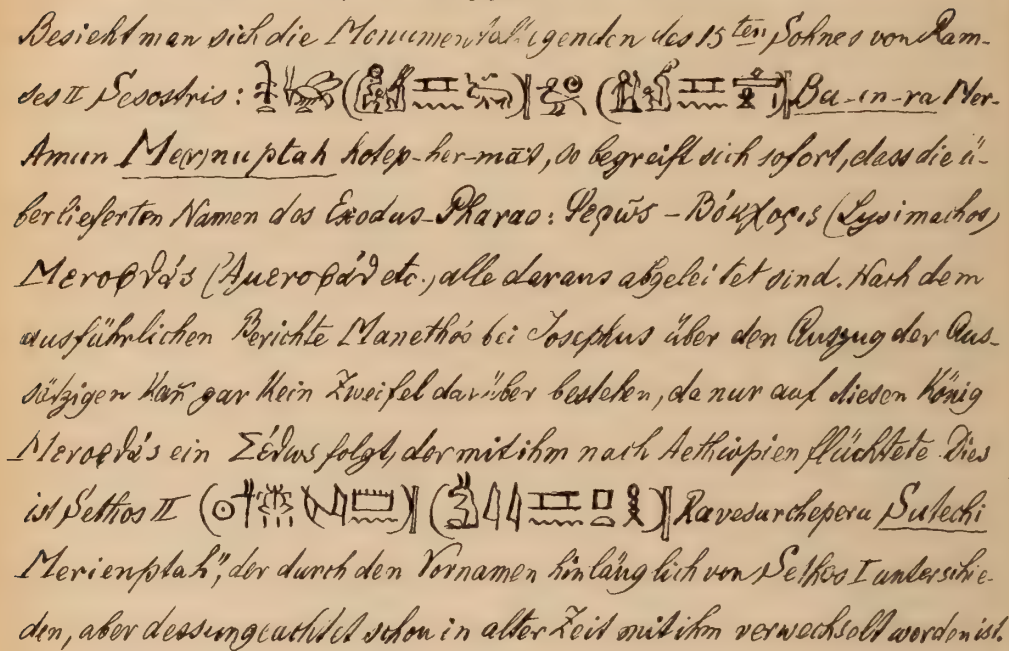 Besieht man sich die Monumentallegenden des 15ten Sohnes von Ram-
ses II Sesostris: Ba-in-ra Mer-
Amun Me(r)nuptah hotep-her-māt, so begreift sich sofort, dass die ü-
berlieferten Namen des Exodus-Pharao: Φερῶς – Βόκχορις (Lysimachos)
Μεροφθάς (Ἀμεροφάθ etc., alle daraus abgeleitet sind. Nach dem
ausführlichen Berichte Manetho's bei Josephus über den Auszug der Aus-
sätzigen kañ gar kein Zweifel darüber bestehen, da nur auf diesen König
Μεροφθάς ein Σέθως folgt, der mit ihm nach Aethiopien flüchtete. Dies
ist Sethos II Ravesurcheperu Sutechi
Merienptah", der durch den Vornamen hinlänglich von Sethos I unterschie-
den, aber dessungeachtet schon in alter Zeit mit ihm verwechselt worden ist.